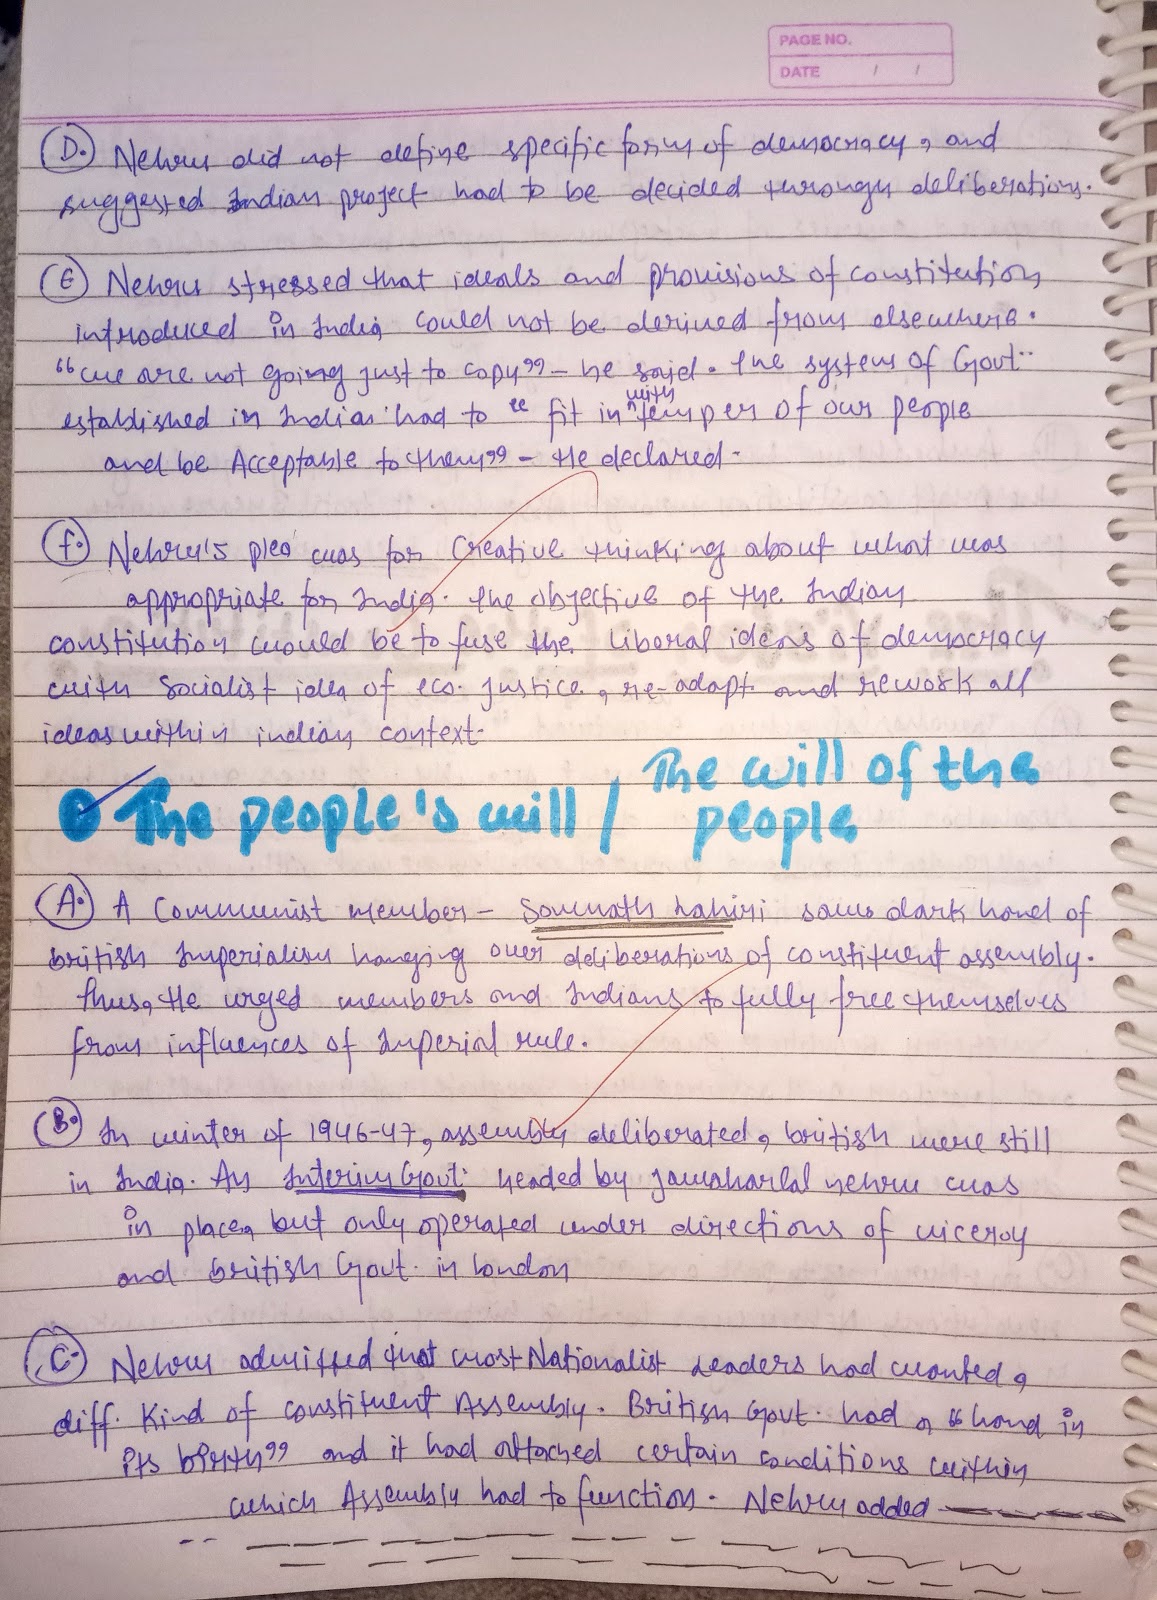 PAGE NO.
DATE / /
D. Nehru did not define specific form of democracy, and
suggested Indian project had to be decided through deliberations.
E Nehru stressed that ideals and provisions of constitution,
introduced in India, could not be derived from elsewhere.
"we are not going just to copy" - he said. The system of Govt.
established in Indian had to " fit in with temper of our people
and be Acceptable to them" - He declared.
f. Nehru's plea was for Creative thinking about what was
appropriate for India. The objective of the Indian
constitution would be to fuse the liberal ideas of democracy
with Socialist idea of eco. justice, re-adapt and rework all
ideas within indian context.
The people's will / The will of the
people
A. A Communist member - Somnath Lahiri saw dark hand of
british Imperialism hanging over deliberations of constituent assembly.
Thus, He urged members and Indians to fully free themselves
from influences of Imperial rule.
B. In winter of 1946-47, assembly deliberated, british were still
in India. An Interim Govt. headed by jawaharlal nehru was
in place, but only operated under directions of viceroy
and british Govt. in london
C. Nehru admitted that most Nationalist Leaders had wanted a
diff. Kind of constituent Assembly. British Govt. had a "hand in
its birth" and it had attached certain conditions within
which Assembly had to function. Nehru added